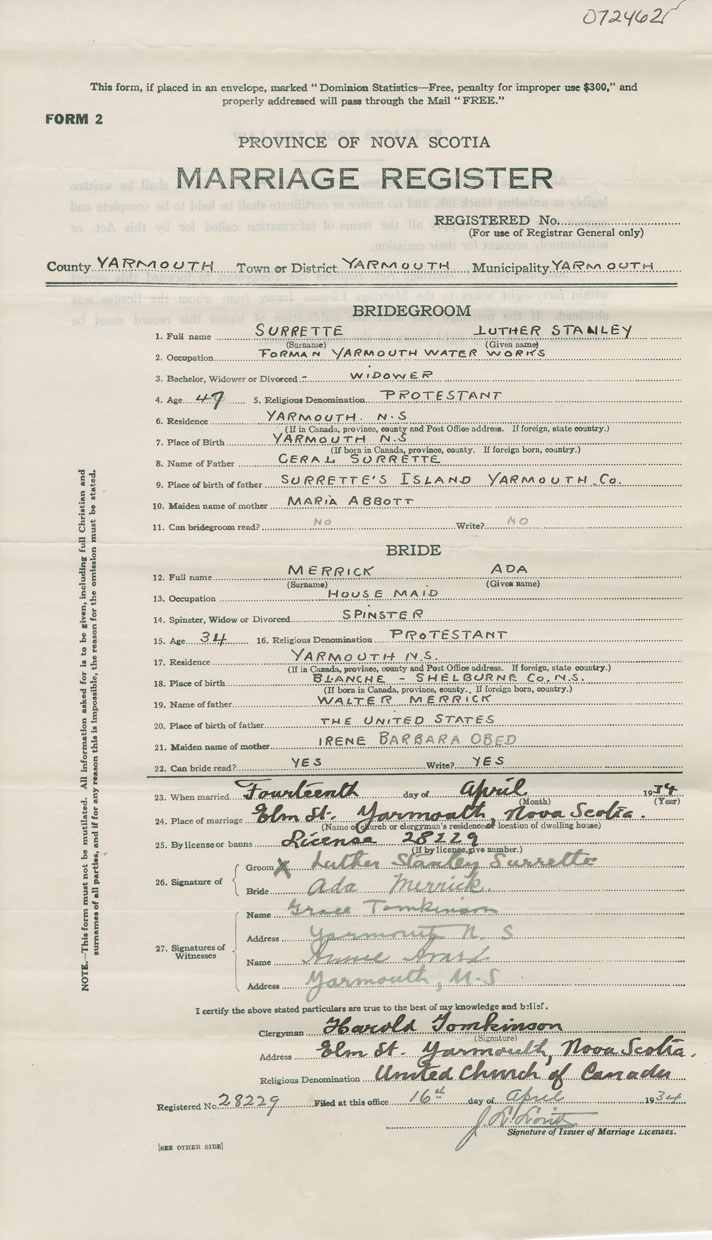 072462
This form, if placed in an envelope, marked "Dominion Statistics—Free, penalty for improper use $300," and
properly addressed will pass through the Mail "FREE."
FORM 2
PROVINCE OF NOVA SCOTIA
MARRIAGE REGISTER
REGISTERED No.
(For use of Registrar General only)
County YARMOUTH Town or District YARMOUTH Municipality YARMOUTH
BRIDEGROOM
1. Full name SURRETTE LUTHER STANLEY
(Surname) (Given name)
2. Occupation FORMAN YARMOUTH WATER WORKS
3. Bachelor, Widower or Divorced WIDOWER
4. Age 47 5. Religious Denomination PROTESTANT
6. Residence YARMOUTH. N.S
(If in Canada, province, county and Post Office address. If foreign, state country.)
7. Place of Birth YARMOUTH N.S
(If born in Canada, province, county. If foreign born, country.)
8. Name of Father CERAL SURRETTE
9. Place of birth of father SURRETTE'S ISLAND YARMOUTH Co.
10. Maiden name of mother MARIA ABBOTT
11. Can bridegroom read? NO Write? NO
BRIDE
12. Full name MERRICK ADA
(Surname) (Given name)
13. Occupation HOUSE MAID
14. Spinster, Widow or Divorced SPINSTER
15. Age 34 16. Religious Denomination PROTESTANT
17. Residence YARMOUTH N.S.
(If in Canada, province, county and Post Office address. If foreign, state country.)
18. Place of birth BLANCHE - SHELBURNE Co. N.S.
(If born in Canada, province, county. If foreign born, country.)
19. Name of father WALTER MERRICK
20. Place of birth of father THE UNITED STATES
21. Maiden name of mother IRENE BARBARA OBED
22. Can bride read? YES Write? YES
23. When married Fourteenth day of April 1934
(Month) (Year)
24. Place of marriage Elm St. Yarmouth, Nova Scotia.
(Name of church or clergyman's residence or location of dwelling house)
25. By license or banns License 28229
(If by license, give number.)
26. Signature of
Groom X Luther Stanley Surrette
Bride Ada Merrick
27. Signatures of Witnesses
Name Grace Tomkinson
Address Yarmouth N. S
Name Annie
Address Yarmouth, N-S
I certify the above stated particulars are true to the best of my knowledge and belief.
Clergyman Harold Tomkinson
(Signature)
Address Elm St. Yarmouth, Nova Scotia.
Religious Denomination United Church of Canada
Registered No. 28229 Filed at this office 16th day of April 1934
Signature of Issuer of Marriage Licenses.
[SEE OTHER SIDE]
NOTE.—This form must not be mutilated. All information asked for is to be given, including full Christian and
surnames of all parties, and if for any reason this is impossible, the reason for the omission must be stated.